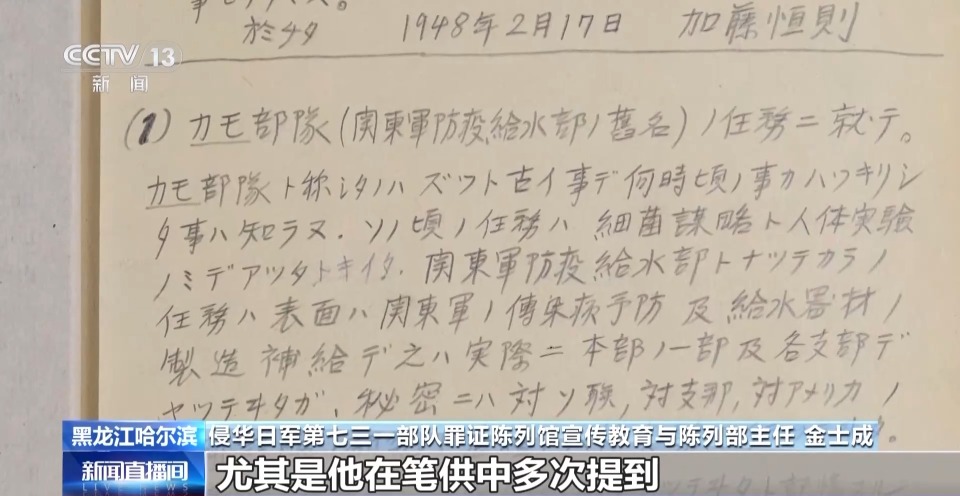 於チタ 1948年2月17日 加藤恒則
CCTV 13
新闻
(1) カモ部隊(関東軍防疫給水部ノ舊名)ノ任務ニ就テ。
カモ部隊ト称シタノハ ズツト古イ事デ何時頃ノ事カハツキリシ
タ事ハ知ラヌ. ソノ頃ノ任務ハ 細菌謀略ト人体実験
ノミデアツタトキイタ. 関東軍防疫給水部トナツテカラノ
任務ハ表面ハ関東軍ノ傳染病予防 及 給水器材ノ
製造補給デ之ハ実際ニ本部ノ一部及各支部デ
ヤツテヰタガ, 秘密ニハ対ソ聯, 対支那, 対アメリカノ
黑龙江哈尔滨 侵华日军第七三一部队罪证陈列馆宣传教育与陈列部主任 金士成
新闻直播间 尤其是他在笔供中多次提到